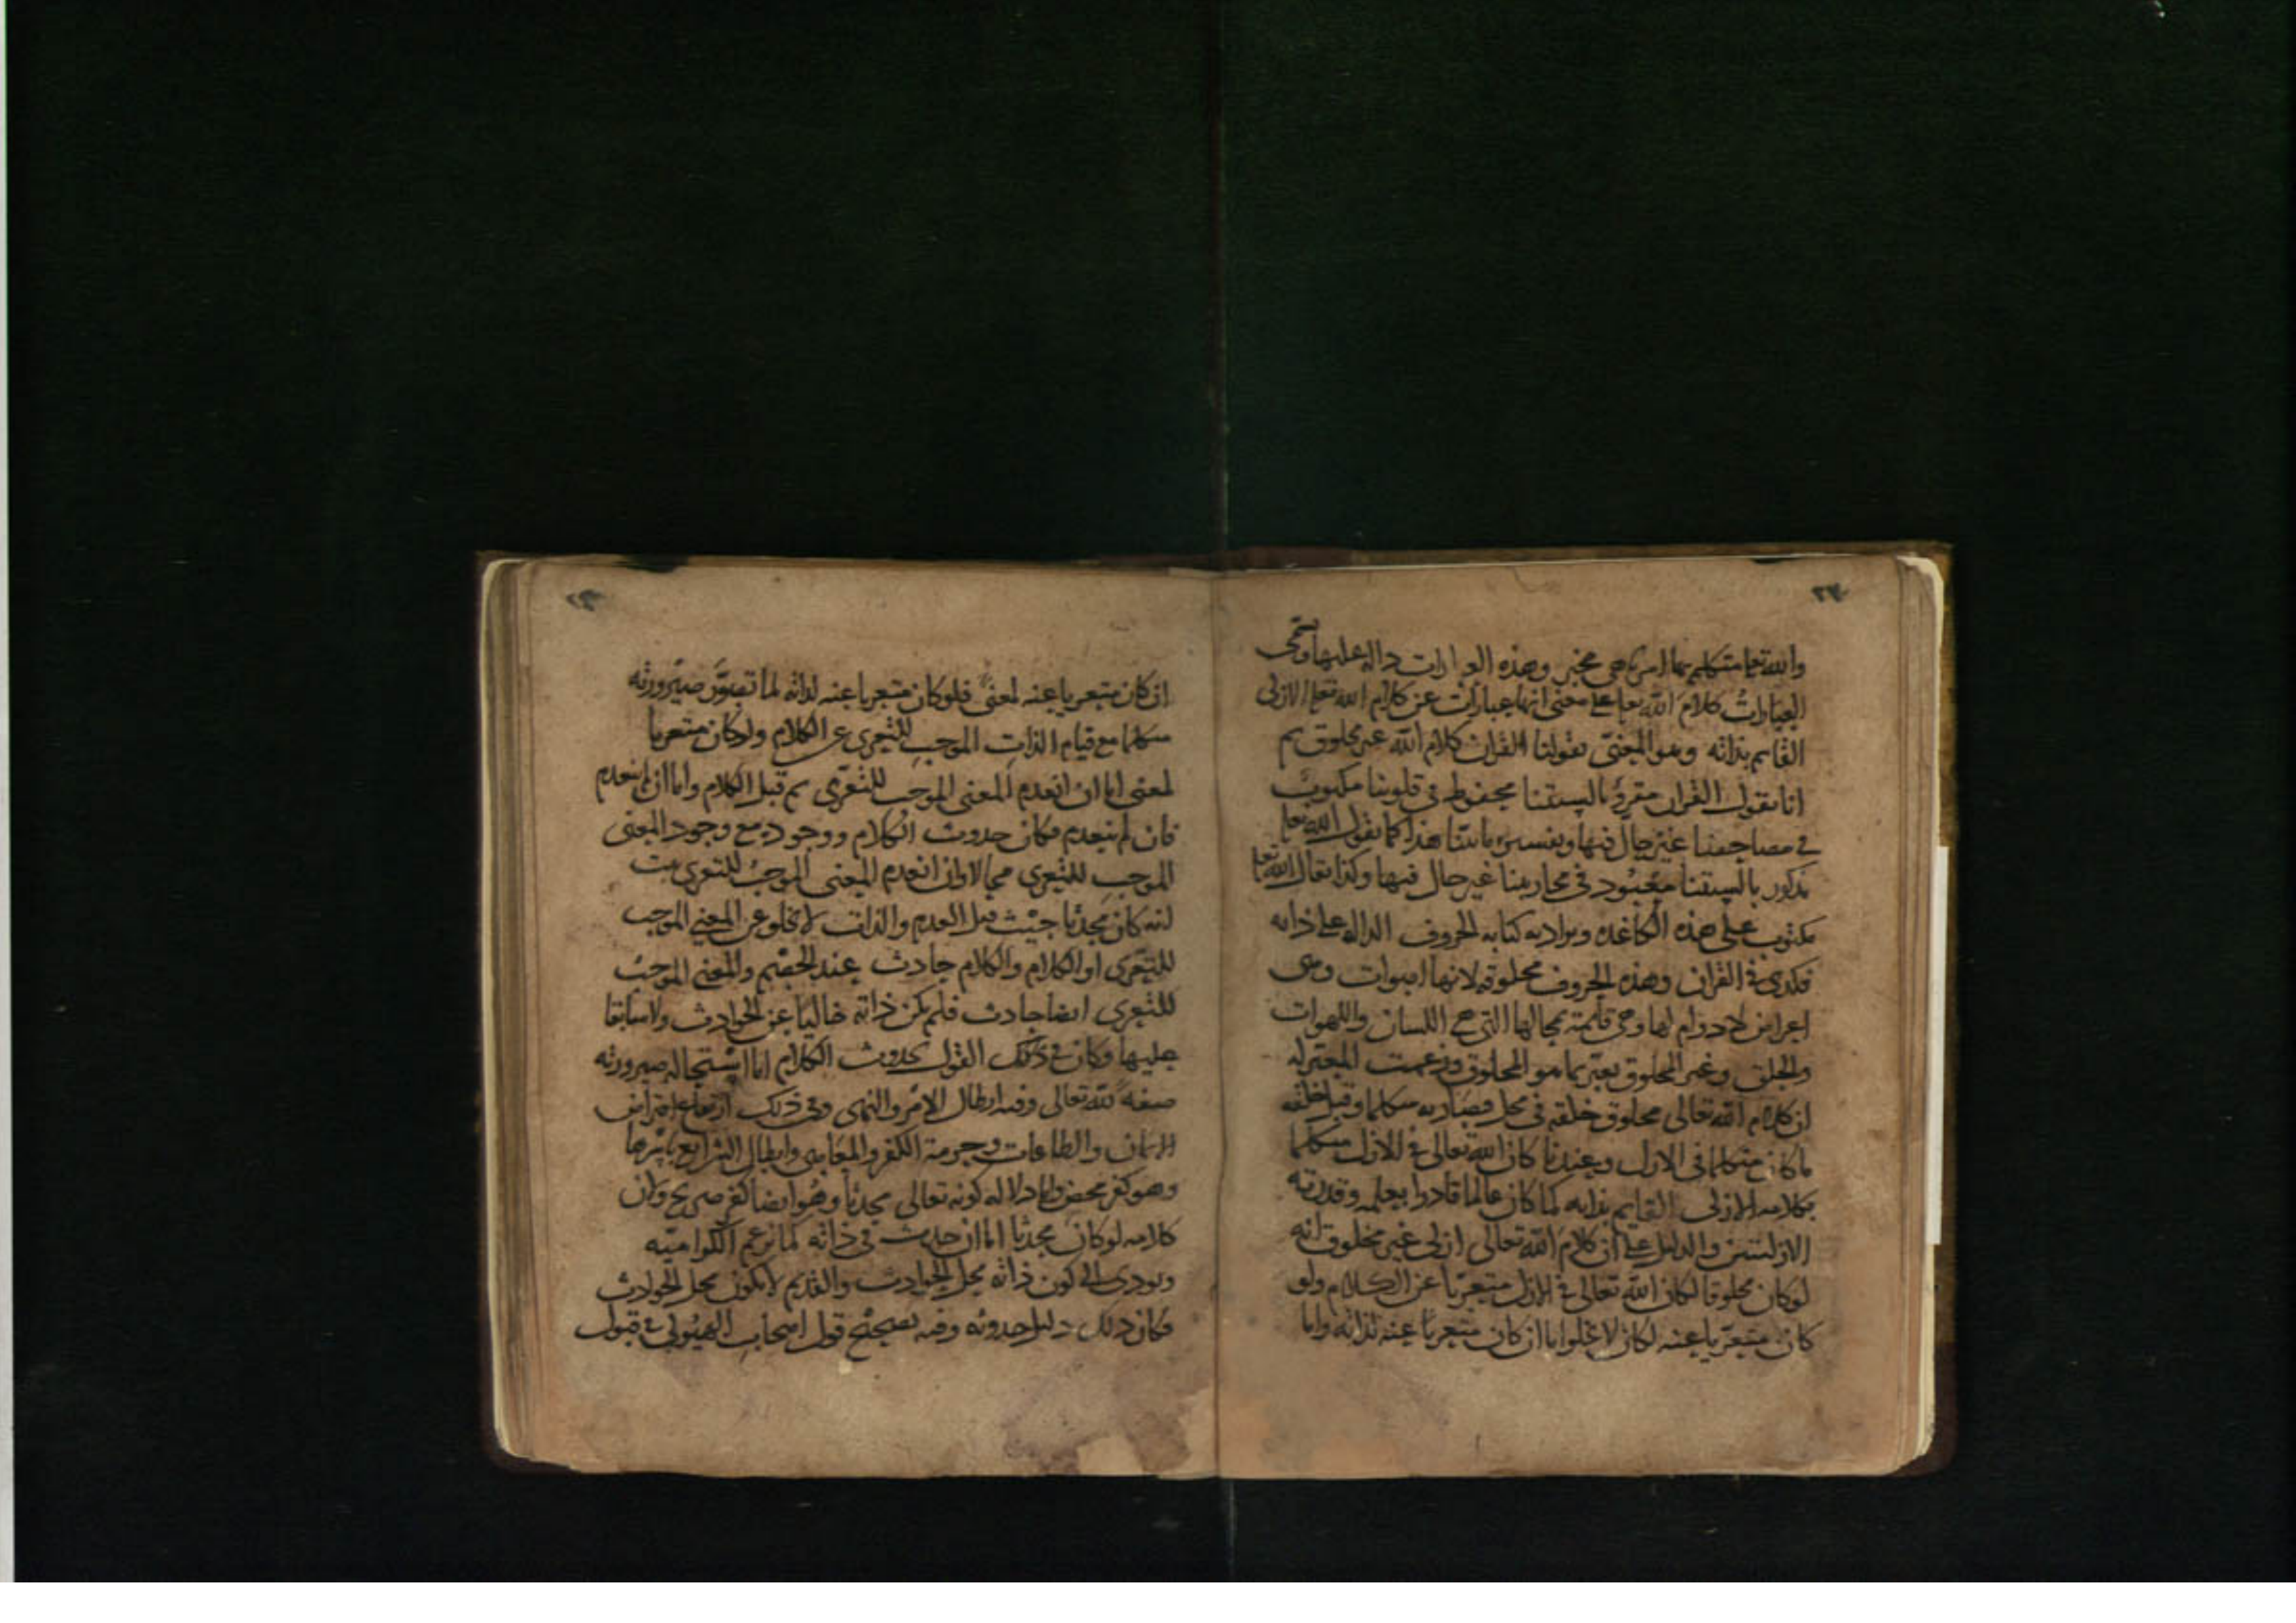 والله تعا متكلم بها امر ناهي مخبر وهذه العبارات دالة عليها وتسمى
العبارات كلام الله تعا على معنى انها عبارات عن كلام الله تعا الازلى
القايم بذاته وهو المعنى بقولنا القران كلام الله غير مخلوق ثم
انا نقول القران مقروّ بالسنتنا محفوظ في قلوبنا مكتوب
في مصاحفنا غير حال فيها هذا كما نقول الله تعا
مذكور بالسنتنا معبود في محاريبنا غير حال فيها وكذا يقال الله تعا
مكتوب على هذه الكاغدة ويراد به كتابه الحروف الداله على ذاته
فكذى في القران وهذه الحروف مخلوقه لانها اصوات وهى
اعراض لا دوام لها وهى قايمة بمحالها التي هي اللسان واللهوات
والحلق وغير المخلوق يعبر بما هو المخلوق وزعمت المعتزله
ان كلام الله تعالى مخلوق خلقه في محل فصار به متكلما وقبل خلقه
ما كان متكلما في الازل وعندنا كان الله تعالى في الازل متكلما
بكلامه الازلى القايم بذاته كما كان عالما قادرا بعلمه وقدرته
الازليتين والدليل على ان كلام الله تعالى ازلى غير مخلوق انه
لو كان مخلوقا لكان الله تعالى في الازل متعريا عن الكلام ولو
كان متعريا عنه لكان لا يخلوا اما ان كان متعريا عنه لذاته واما
ان كان متعريا عنه لمعنى فلو كان متعريا عنه لذاته لما تصوّر صيرورته
متكلما مع قيام الذات الموجب للتعرى عن الكلام ولو كان متعريا
لمعنى اما ان انعدم المعنى الموجب للتعرى ثم قبل الكلام واما ان لم ينعدم
فان لم ينعدم فكان حدوث الكلام ووجوده مع وجود المعنى
الموجب للتعرى محالا وان انعدم المعنى الموجب للتعرى ثبت
انه كان محدثا حيث قبل العدم والذات لا تخلو عن المعنى الموجب
للتعرى او الكلام والكلام حادث عند الخصم والمعنى الموجب
للتعرى ايضا حادث فلم يكن ذاته خاليا عن الحوادث ولا سابقا
عليها وكان في ذلك القول بحدوث الكلام اما استحاله صيرورته
صفة لله تعالى وفيه ابطال الامر والنهى وفى ذلك ارتفاع افتراض
الايمان والطاعات وحرمة الكفر والمعاصى وابطال الشرايع باسرها
وهو كفر محض واما دلاله كونه تعالى محدثا وهو ايضا كفر صريح ولان
كلامه لو كان محدثا اما ان حدث في ذاته كما زعم الكراميه
ويودى الى كون ذاته محل الحوادث والقديم لا يكون محل الحوادث
فكان ذلك دليل حدوثه وفيه تصحيح قول اصحاب الهيولى في قبول